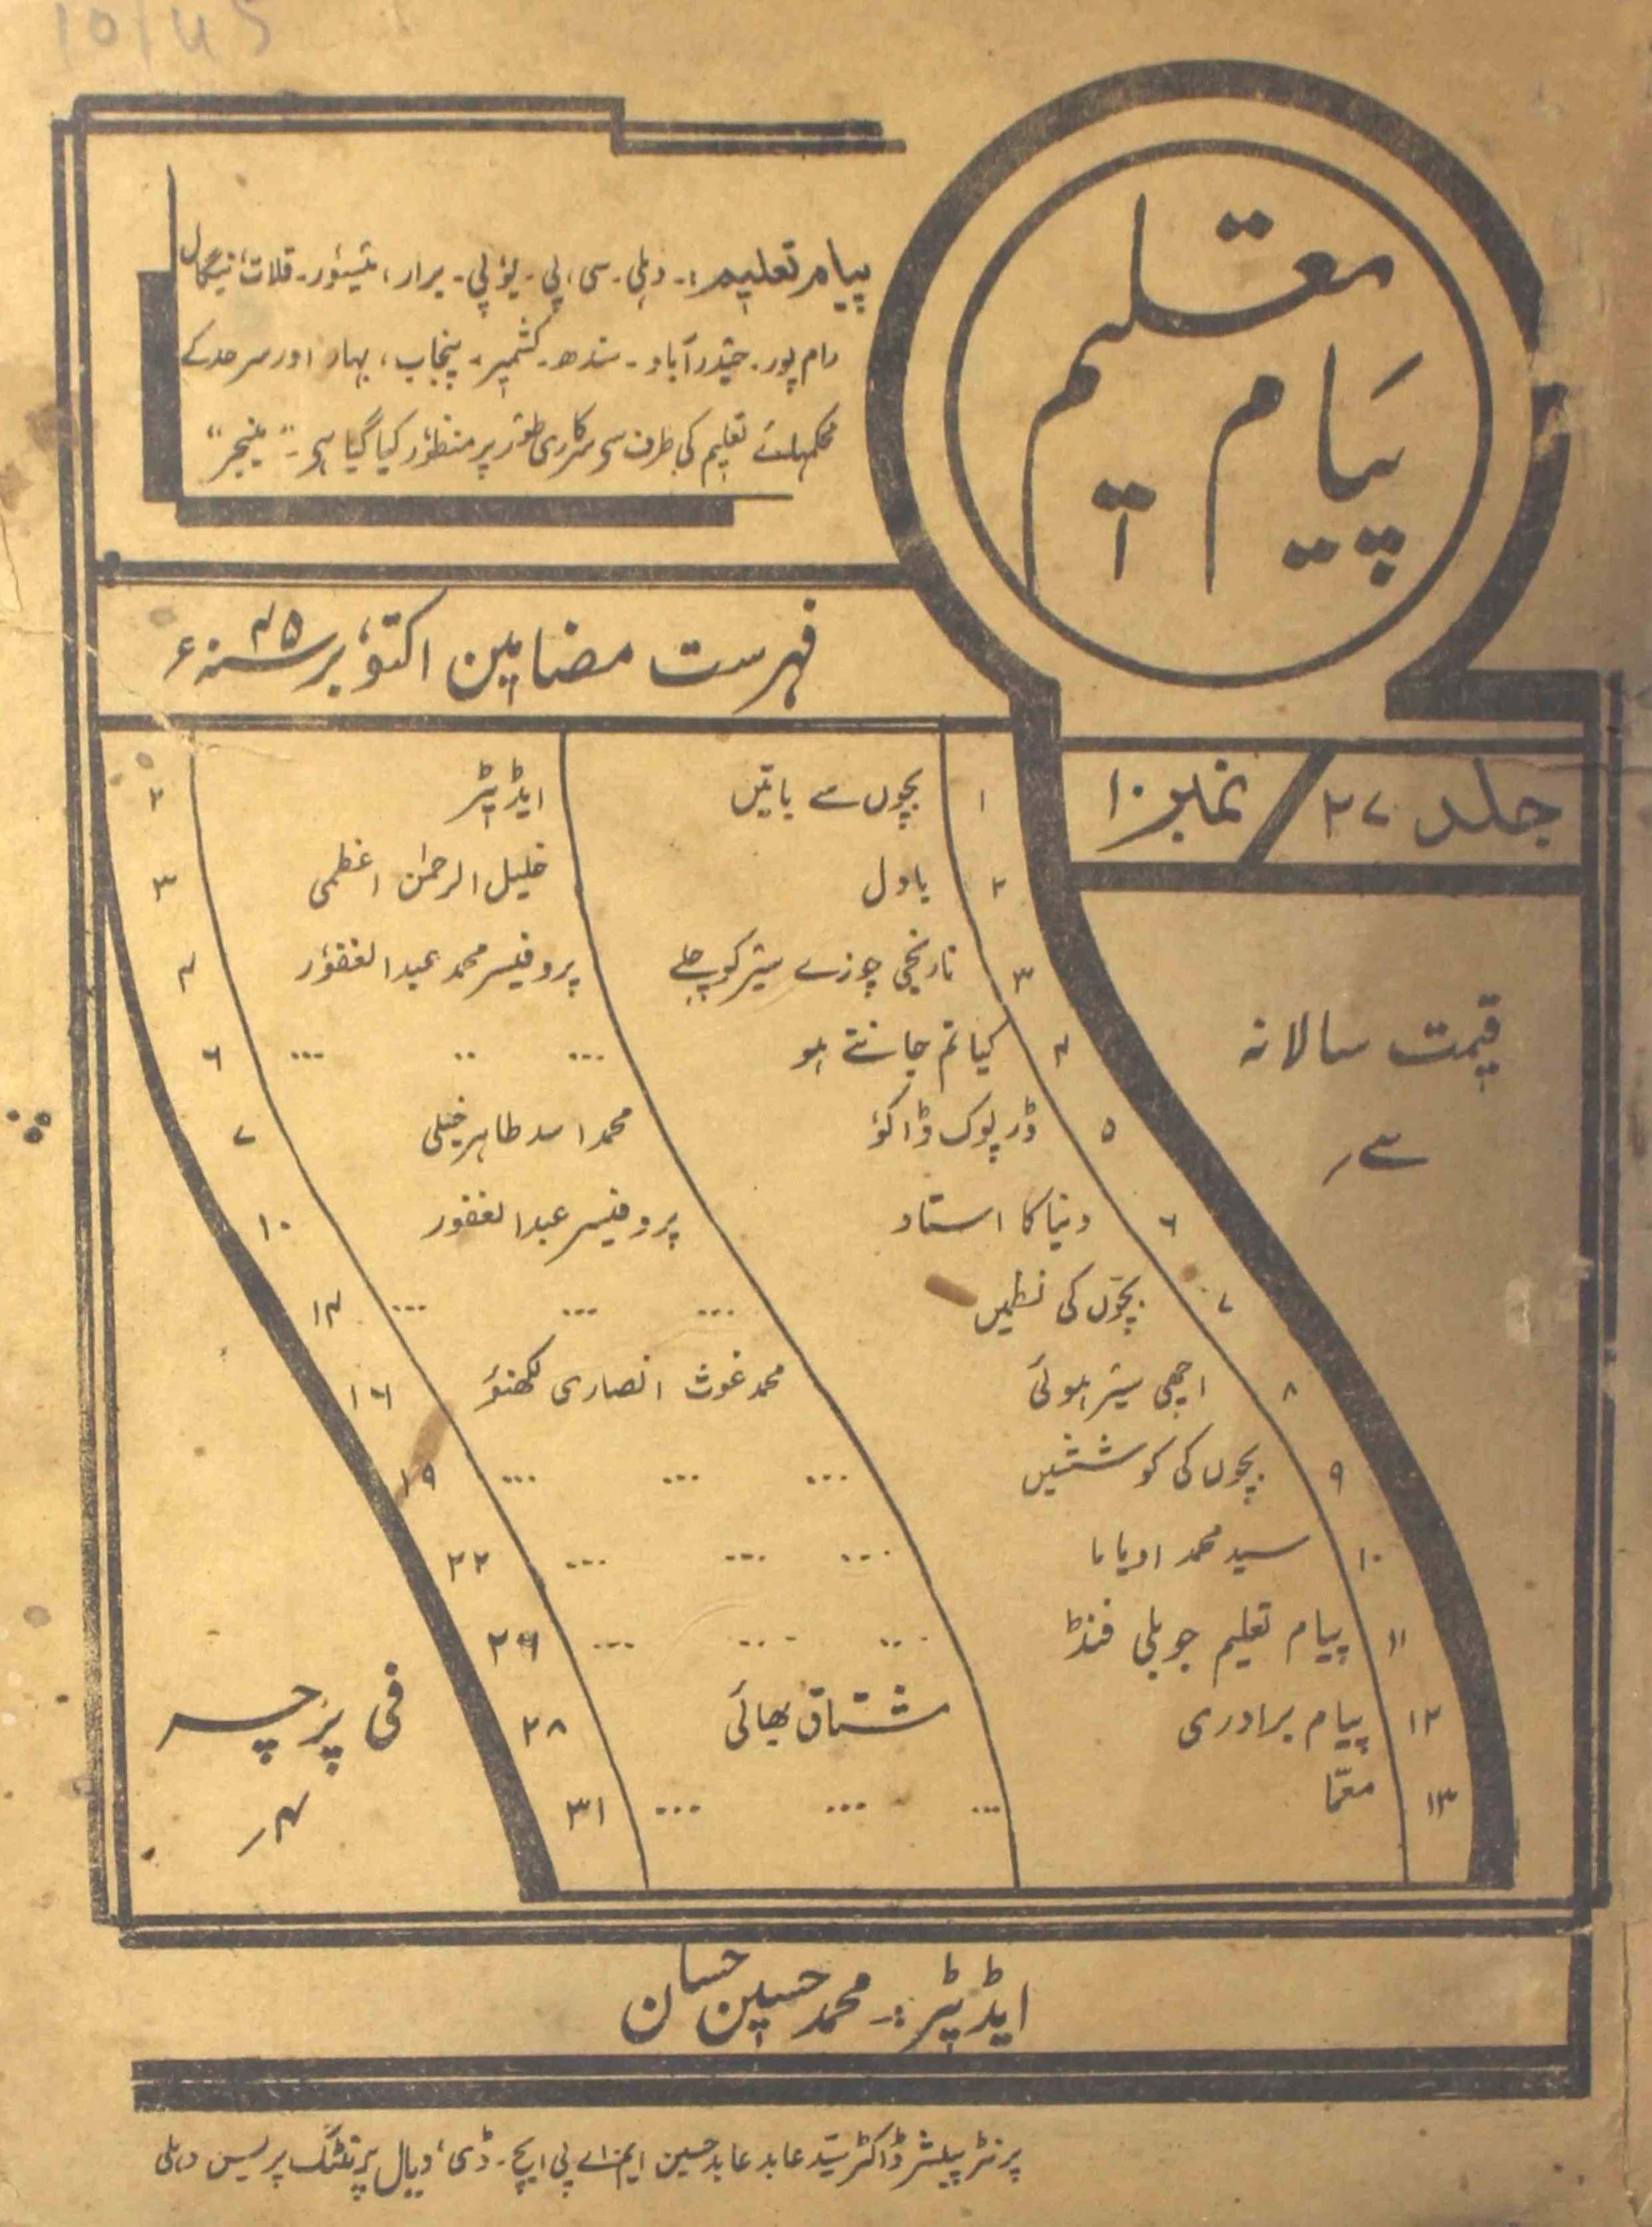 10/45
پیام تعلیم
پیام تعلیم:۔ دہلی۔ سی، پی۔ یو، پی۔ برار، میسور۔ قلات، بنگال
رام پور۔ حیدرآباد۔ سندھ۔ کشمیر۔ پنجاب، بہار اور سرحد کے
محکمہائے تعلیم کی طرف سے سرکاری طور پر منظور کیا گیا ہے۔ "منیجر"
فہرست مضامین اکتوبر ۴۵سنہ ء
جلد ۲۷ / نمبر ۱۰
قیمت سالانہ
۱ بچوں سے باتیں ایڈیٹر ۲
۲ بادل خلیل الرحمٰن اعظمی ۳
۳ نارنجی چوزے سیر کو چلے پروفیسر محمد عبدالغفور ۴
۴ کیا تم جانتے ہو ... .. ... ۶
۵ ڈرپوک ڈاکو محمد اسد طاہر خیلی ۷
۶ دنیا کا استاد پروفیسر عبدالغفور ۱۰
۷ بچوں کی نظمیں ... ... ... ۱۴
۸ اچھی سیر ہوئی محمد غوث انصاری لکھنؤ ۱۶
۹ بچوں کی کوششیں ... ... ... ۱۹
۱۰ سید محمد اور بابا ... ... ... ۲۲
۱۱ پیام تعلیم جوبلی فنڈ ... ... ... ۲۶
۱۲ پیام برادری مشتاق بھائی ۲۸
۱۳ معمّا ... ... ... ۳۱
فی پرچہ
۴ر
ایڈیٹر:۔ محمد حسین حسان
پرنٹر پبلشر ڈاکٹر سیّد عابد عابد حسین ایم۔اے پی ایچ۔ ڈی، دیال پرنٹنگ پریس دہلی